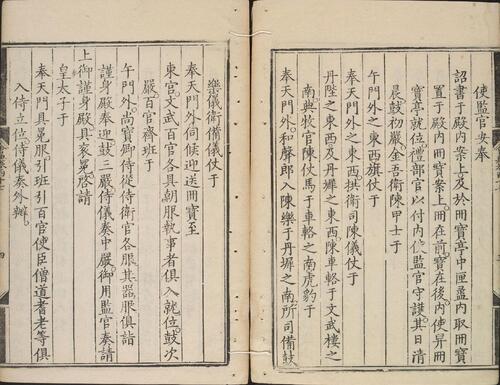 使監官安奉
詔書于殿内案上及於冊寶亭中匣盝内取冊寶
置于殿内冊寶案上冊在前寶在後内使舁冊
寶亭就位禮部官以付内使監官守護其日清
晨鼓初嚴金吾衛陳甲士于
午門外之東西旗仗于
奉天門外之東西拱衛司陳儀仗于
丹陛之東西及丹墀之東西陳車輅于文武樓之
南典牧官陳仗馬于車輅之南虎豹于
奉天門外和聲郎入陳樂于丹墀之南所司備鼓
樂儀衛備儀仗于
奉天門外伺候迎送冊寶至
東宮文武百官各具朝服執事者俱入就位鼓次
嚴百官齊班于
午門外尚寶卿侍從侍衛官各服其器服俱詣
謹身殿奉迎鼓三嚴侍儀奏中嚴御用監官奏請
上御謹身殿具衮冕啓請
皇太子于
奉天門具冕服引班引百官使臣僧道耆老等俱
入侍立位侍儀奏外辦